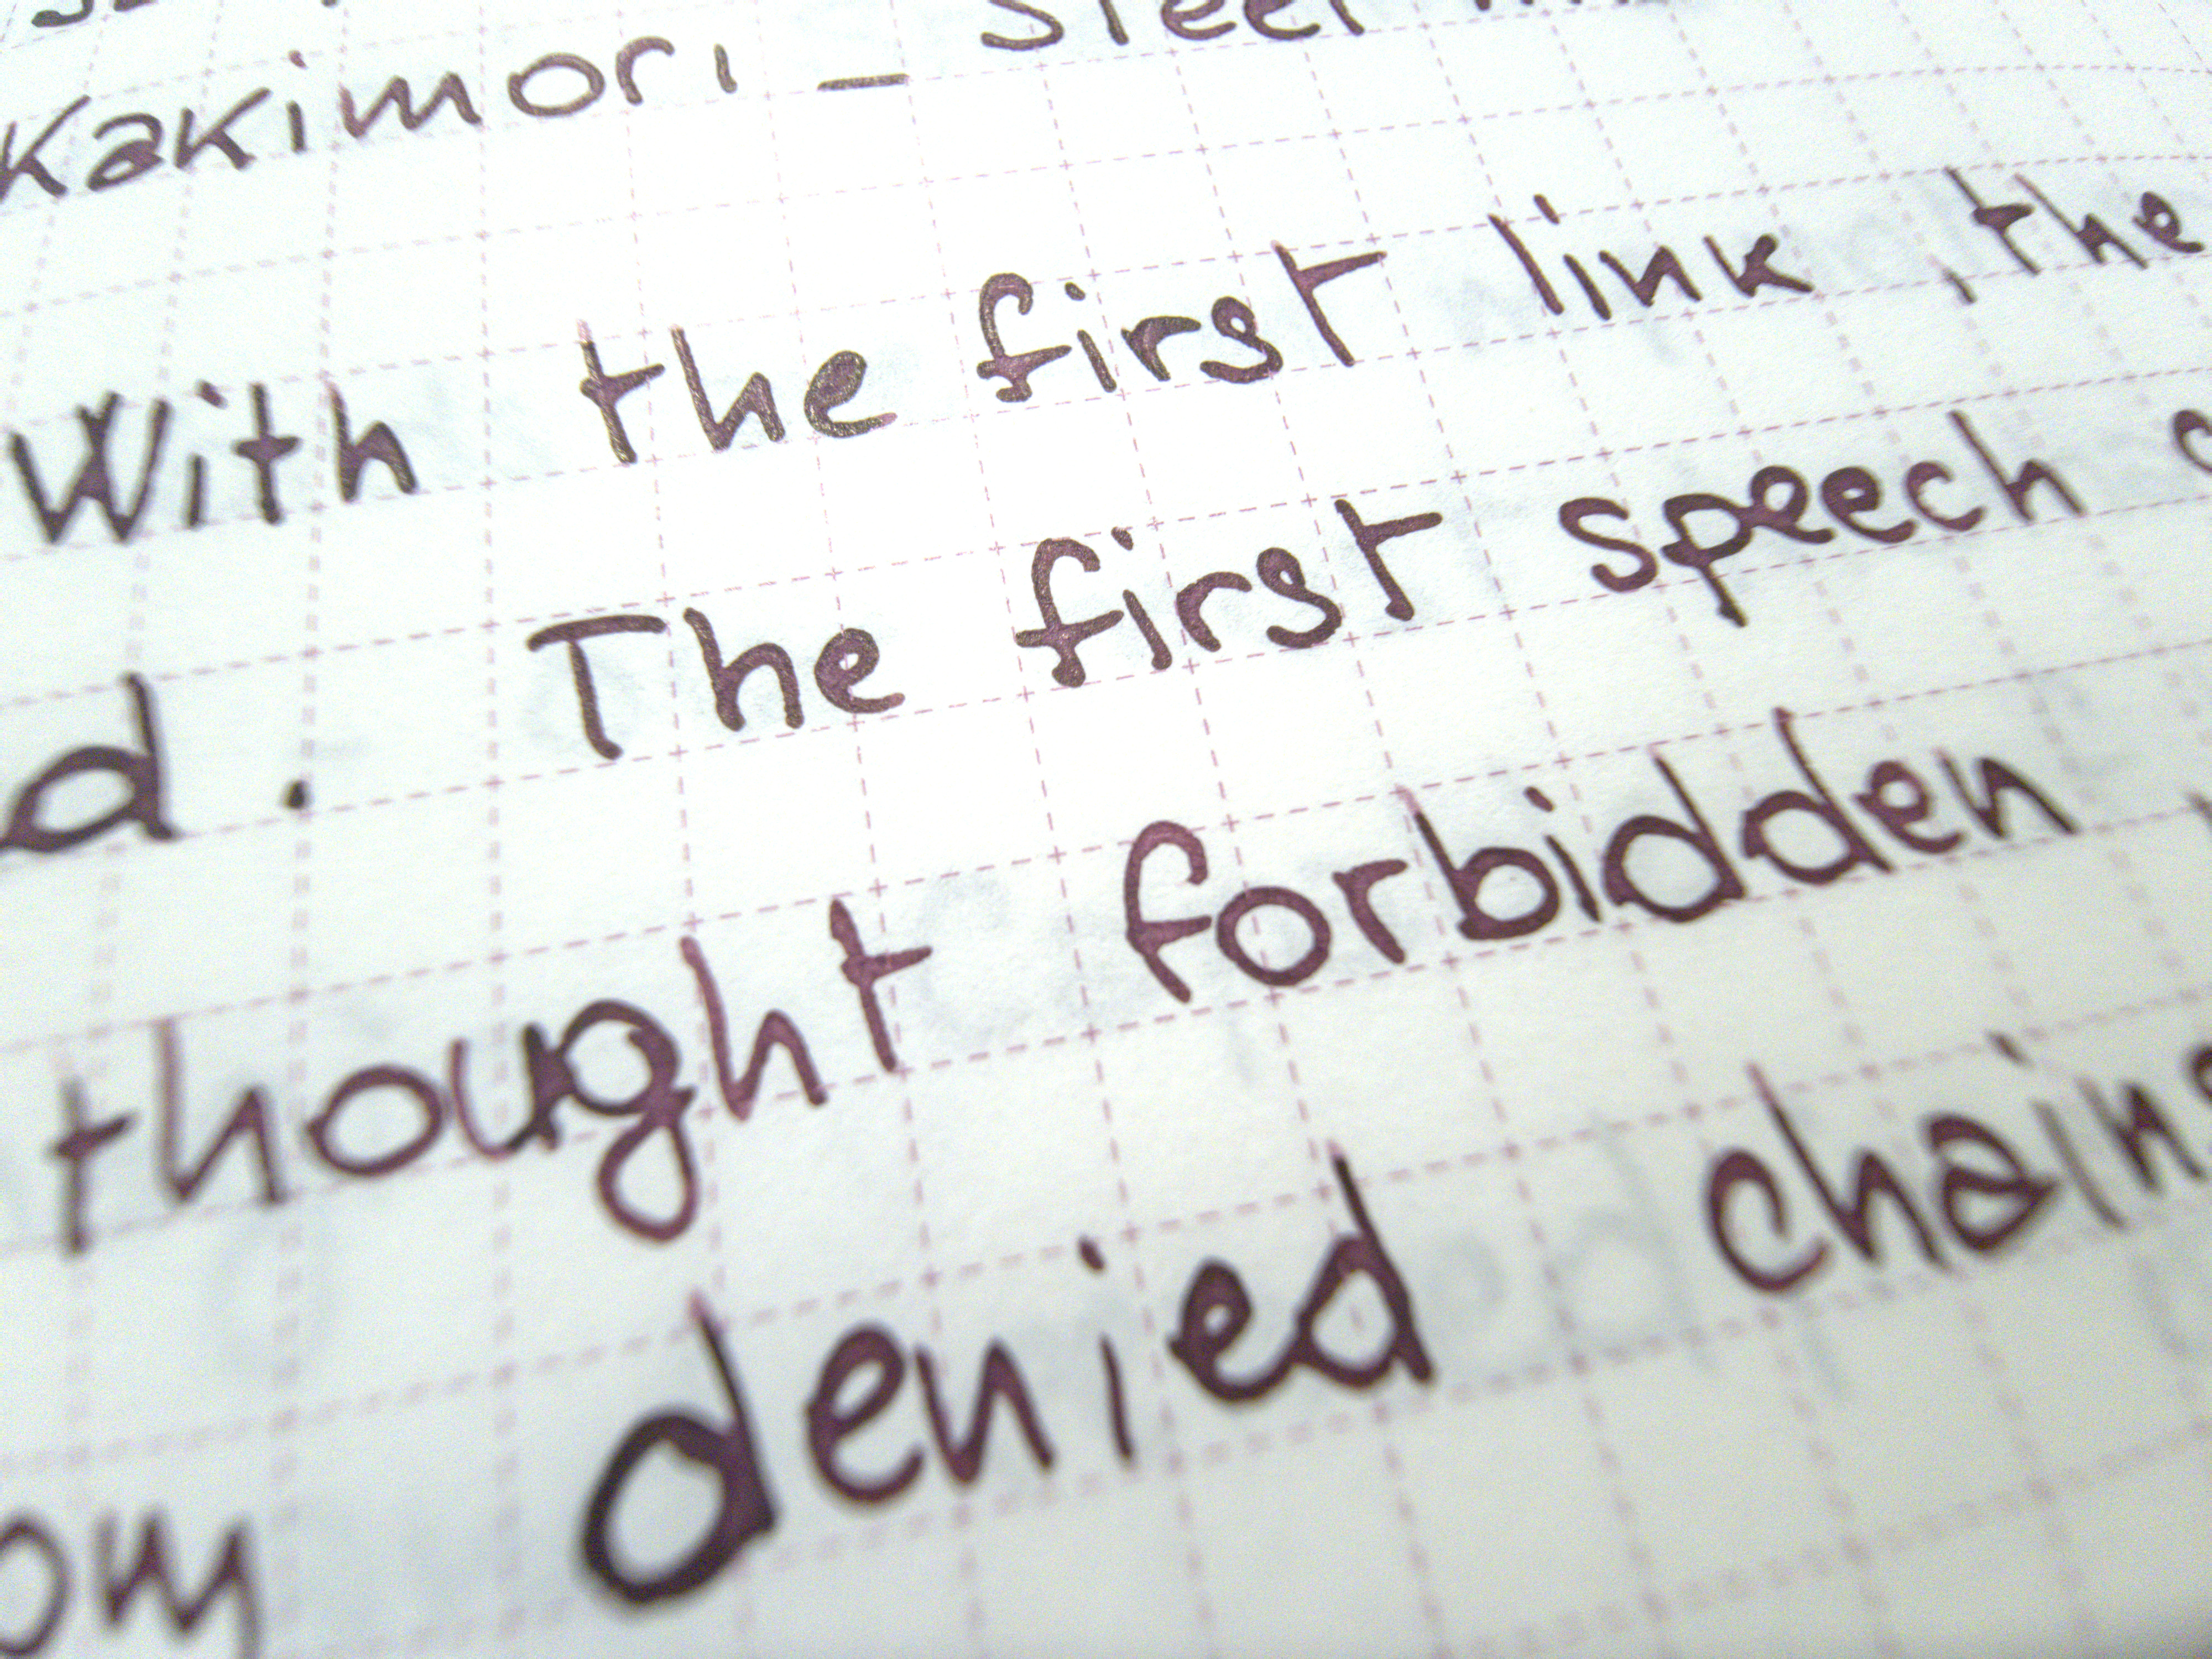 Kakimori — Steel
With the first link, the
d. The first speech
thought forbidden,
denied chains